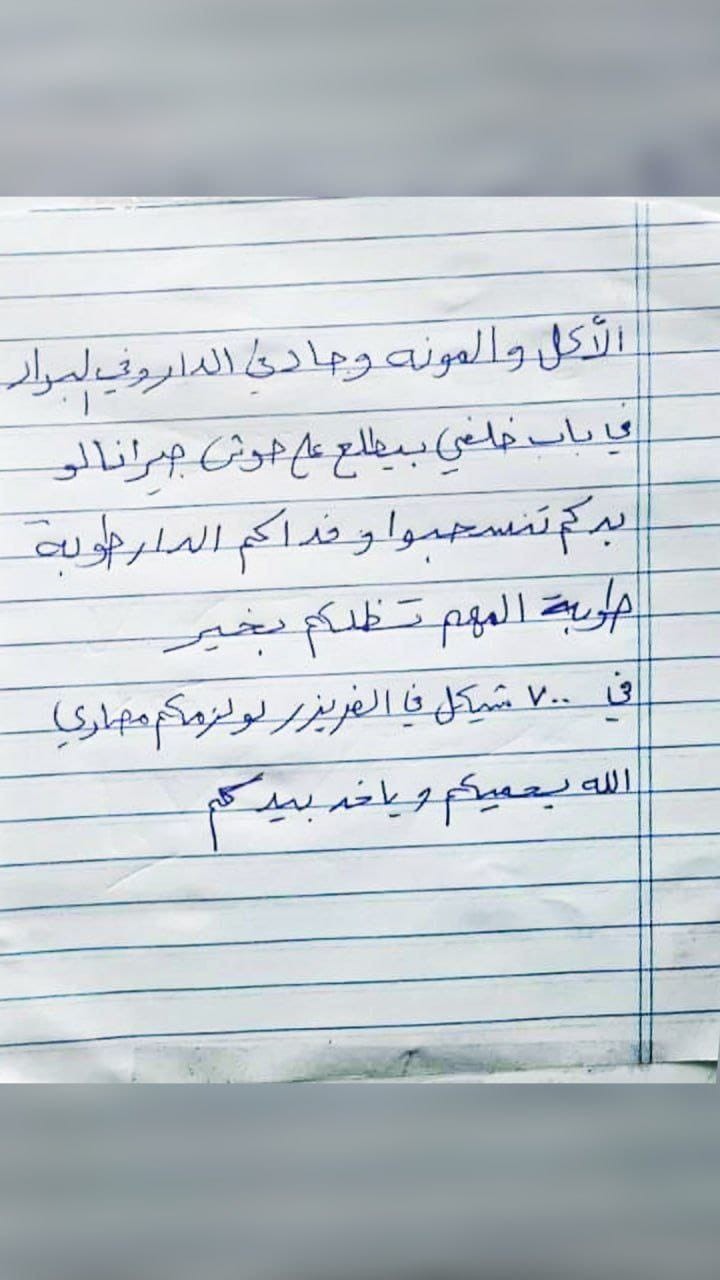 الأكل والمونه وجا دخل الدار وفي البراد
في باب خلفي بيطلع على حوش جيراننا لو
بدكم تنسحبوا وفداكم الدار طوبة
طوبة المهم تظلكم بخير
في ٧٠٠ شيكل في الفريزر لو لزمكم مصاري
الله يحميكم وياخد بيدكم